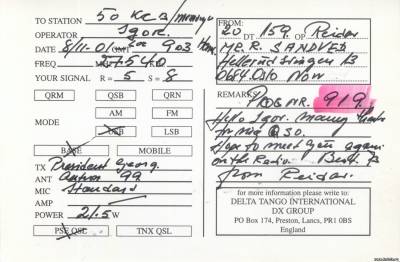 TO STATION 50 KCB/
OPERATOR Igor.
DATE 8/11-01 GMT 903
FREQ 27-540
YOUR SIGNAL R= 5 S= 8
QRM QSB QRN
MODE
AM FM
USB LSB
BASE MOBILE
TX President Georg.
ANT Antron 99
MIC Standard
AMP
POWER 21.5 W
PSE QSL TNX QSL
FROM:
20 DT 159. OP. Reidar
MR. R. SANDVED
13
0684 Oslo Now
REMARKS Prog NR. 919.
Hello Igor. many thanks
for nig QSO.
Hope to meet you again
on the Radio. Best. 73
from Reidar.
for more information please write to:
DELTA TANGO INTERNATIONAL
DX GROUP
PO Box 174, Preston, Lancs, PR1 0BS
England